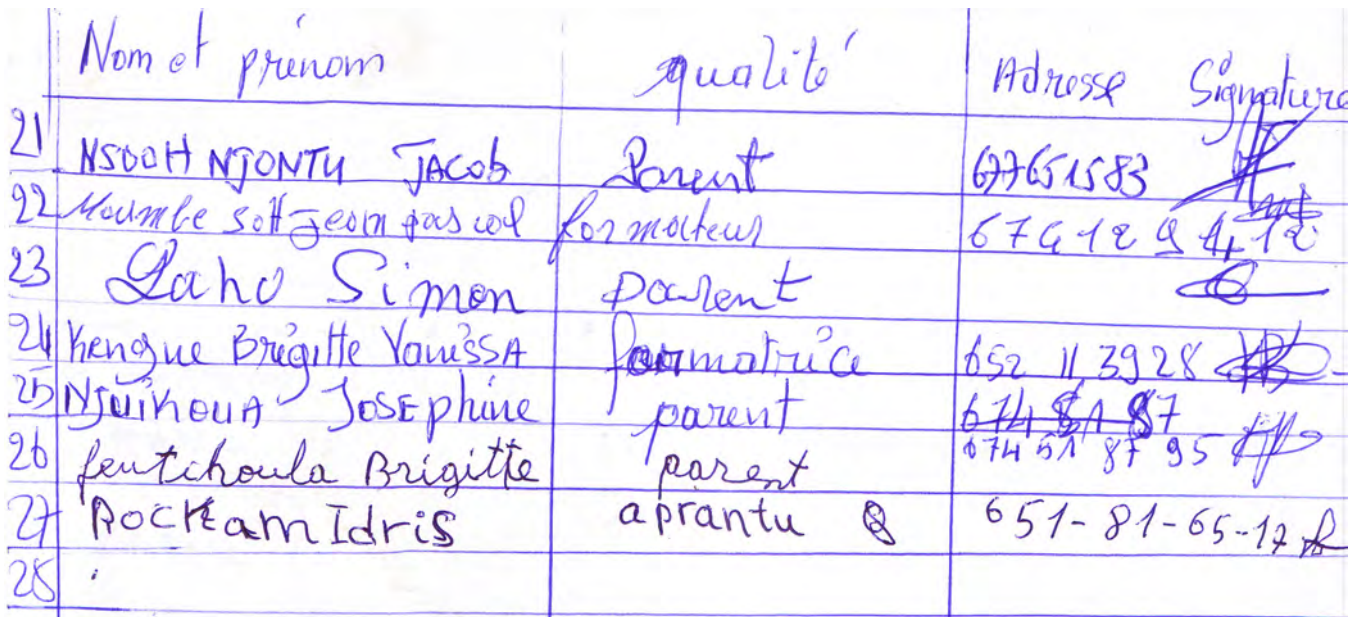 Nom et prénom qualité Adresse Signature
21 NSOOH NJONTU JACOB Parent 677651583
22 Moumbe sott Jean pascal formateur 674129412
23 Laho Simon parent
24 Kengue Brigitte Vanissa formatrice 652 11 3928
25 Njuikoua Josephine parent 674 51 87
674 51 87 95
26 feutchoula Brigitte parent
27 Rockam Idris aprantu 651-81-65-17
28